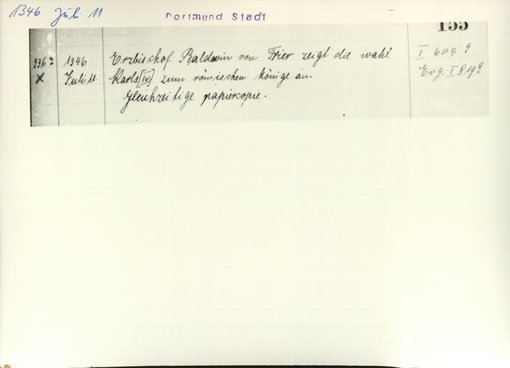 1346 Juli 11
Dortmund Stadt
155
336? 1346 Erzbischof Baldwin von Trier zeigt die wahl I 604?
X Juli 11. Karls[IV] zum römischen könige an. Erg. I 819?
Gleichzeitige papiercopie.